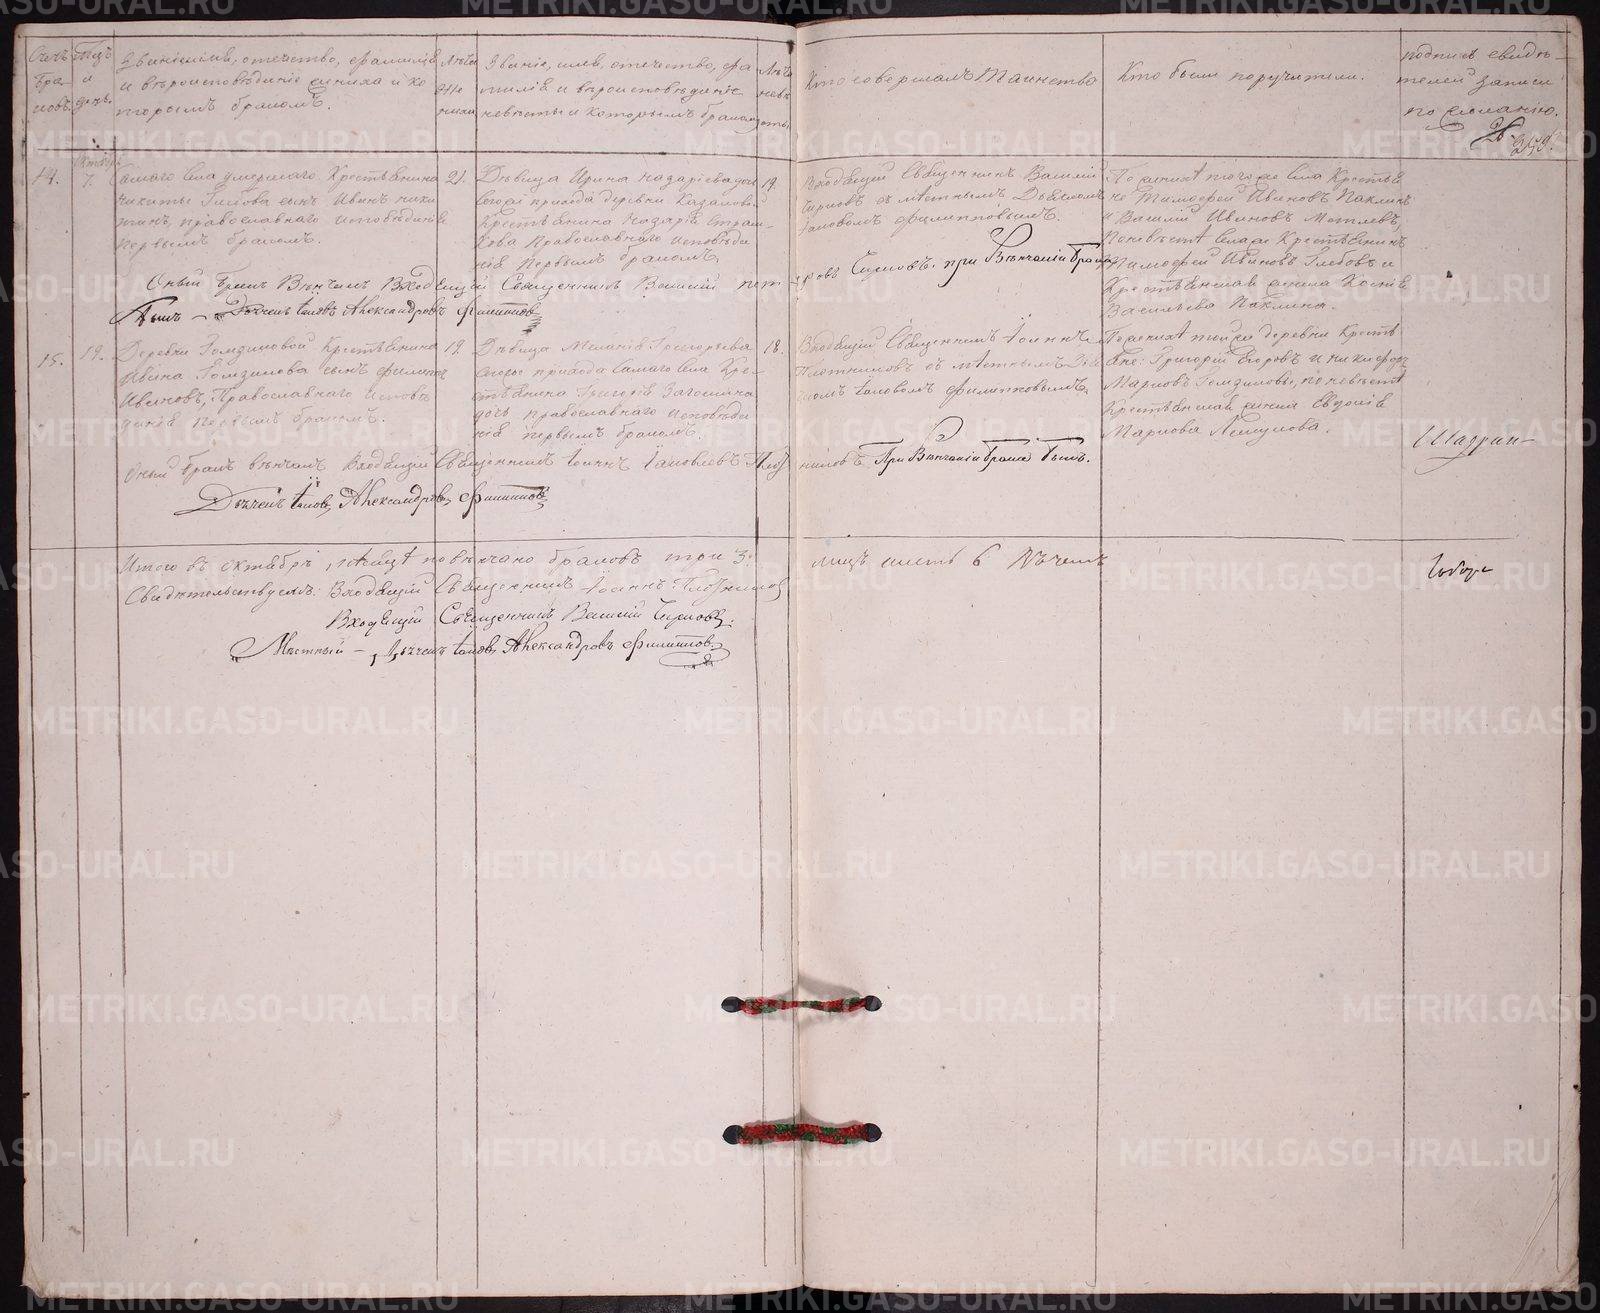 Счетъ браковъ.
Мѣс: и день.
Званіе, имя, отечество, фамилія
и вѣроисповѣданіе жениха и ко
торымъ бракомъ.
Лѣта жениха
Званіе, имя, отечество, фа
милія и вѣроисповѣданіе
невѣсты и которымъ бракомъ
Лѣта невѣсты
Кто совершалъ Таинство
Кто были поручители.
подпись свидѣ-
телей записи
по желанію.
259.
14.
Октябрь
7.
Самаго села умершаго Крестьянина
Никиты Глебова сынъ Иванъ Ники
тинъ, православнаго исповѣданія
первымъ бракомъ.
21.
Дѣвица Ирина Назаріева
прихода деревни Казаковой
Крестьянина Назарія
православнаго исповѣда
нія первымъ бракомъ.
19.
Входящій Священникъ Василій
Чирковъ съ мѣстнымъ Дьячкомъ
Іаковомъ Филипповымъ.
По женихѣ того же села Крестья
не Тимофей Ивановъ Паклинъ
и Василій Ивановъ Метлевъ,
По невѣстѣ села же Крестьянинъ
Тимофей Ивановъ Глебовъ и
Крестьянская жинка Ксенія
Васильева Паклина.
Оный бракъ Вѣнчалъ Входящій Священникъ Василій Петровъ Чирковъ. при Вѣнчаніи брака
былъ — Дьячекъ Іаковъ Александровъ Филипповъ
15.
19.
Деревни Гомзиковой Крестьянина
Ивана Гомзикова сынъ Филиппъ
Ивановъ, Православнаго исповѣ
данія первымъ бракомъ.
19.
Дѣвица Меланія Григорьева
сего же прихода самаго села Кре-
стьянина Григорія
дочь православнаго исповѣда
нія первымъ бракомъ.
18.
Входящій Священникъ Іоаннъ
Плотниковъ съ мѣстнымъ Дья
чкомъ Іаковомъ Филипповымъ.
По женихѣ той же деревни Крестья
не: Григорій Егоровъ и Никифоръ
Марковъ Гомзиковы, по невѣстѣ
Крестьянская жинка Евдокія
Маркова
Оный бракъ вѣнчалъ Входящій Священникъ Іоаннъ Іаковлевъ Плотниковъ. При Вѣнчаніи брака былъ.
Дьячекъ Іаковъ Александровъ Филипповъ
Шадрин-
Итого въ октябрѣ мѣсяцѣ повѣнчано браковъ три 3. лицъ шесть 6 въ чемъ
Свидѣтельствуемъ: Входящій Священникъ Іоаннъ Плотниковъ
Входящій Священникъ Василій Чирковъ.
Мѣстный — Дьячекъ Іаковъ Александровъ Филипповъ.
METRIKI.GASO-URAL.RU